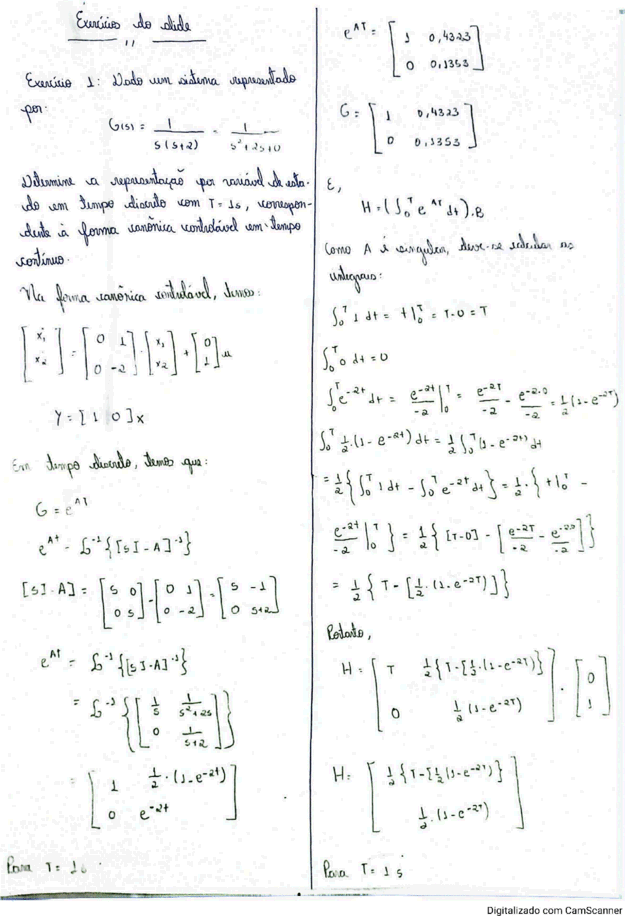 Exercícios do slide
Exercício 1: Dado um sistema representado
por:
G(s) = 1/(s(s+2)) = 1/(s²+2s+0)
Determine a representação por variável de esta-
do em tempo discreto com T=1s, correspon-
dente à forma canônica controlável em tempo
contínuo.
Na forma canônica controlável, temos:
[x₁; x₂] = [0 1; 0 -2] · [x₁; x₂] + [0; 1] u
Y = [1 0] x
Em tempo discreto, temos que:
G = e^AT
e^At = L^-1 {[sI - A]^-1}
[sI - A] = [s 0; 0 s] - [0 1; 0 -2] = [s -1; 0 s+2]
e^AT = L^-1 {[sI-A]^-1}
= L^-1 {[1/s 1/(s²+2s); 0 1/(s+2)]}
= [1 1/2·(1-e^-2t); 0 e^-2t]
Para T = 1s
e^AT = [1 0,4323; 0 0,1353]
G = [1 0,4323; 0 0,1353]
E,
H = (∫₀^T e^AT dt).B
Como A é singular, deve-se calcular as
integrais:
∫₀^T 1 dt = t|₀^T = T-0 = T
∫₀^T 0 dt = 0
∫₀^T e^-2t dt = e^-2t/-2 |₀^T = e^-2T/-2 - e^-2.0/-2 = 1/2(1-e^-2T)
∫₀^T 1/2.(1-e^-2t) dt = 1/2 ∫₀^T (1-e^-2t) dt
= 1/2 {∫₀^T 1 dt - ∫₀^T e^-2t dt} = 1/2.{t|₀^T -
e^-2t/-2 |₀^T} = 1/2 {[T-0] - [e^-2T/-2 - e^-2.0/-2]}
= 1/2 {T-[1/2.(1-e^-2T)]}
Portanto,
H = [T 1/2{T-[1/2.(1-e^-2T)}; 0 1/2(1-e^-2T)] . [0; 1]
H = [1/2{T-[1/2(1-e^-2T)}; 1/2.(1-e^-2T)]
Para T = 1s
Digitalizado com CamScanner